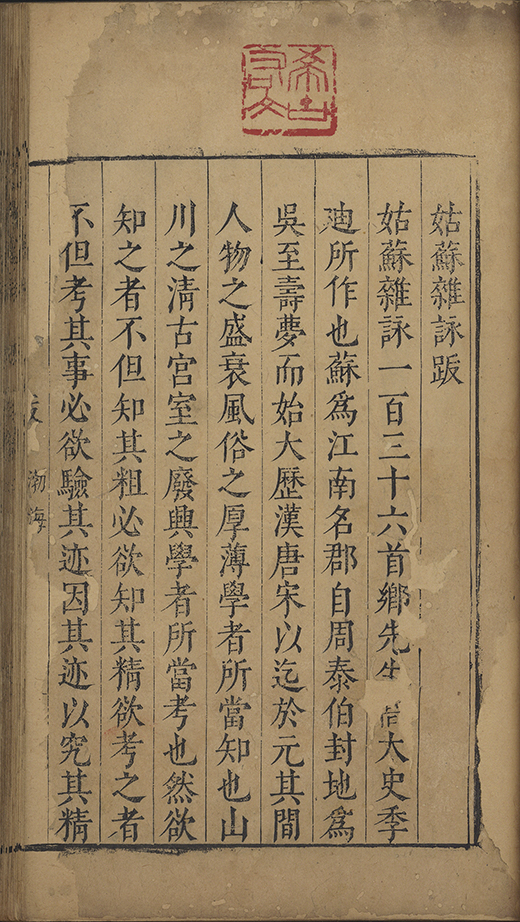 姑蘇雜詠跋
姑蘇雜詠一百三十六首鄉先生大史季
廸所作也蘇爲江南名郡自周泰伯封地爲
吳至壽夢而始大歷漢唐宋以迄於元其間
人物之盛衰風俗之厚薄學者所當知也山
川之清古宮室之廢興學者所當考也然欲
知之者不但知其粗必欲知其精欲考之者
不但考其事必欲驗其迹因其迹以究其精
渤海